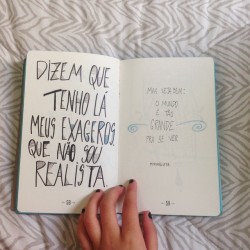 DIZEM QUE
TENHO LÁ
MEUS EXAGEROS,
QUE NÃO SOU
REALISTA.
MAS VEJA BEM:
O MUNDO
É TÃO
GRANDE
PRA SE VER